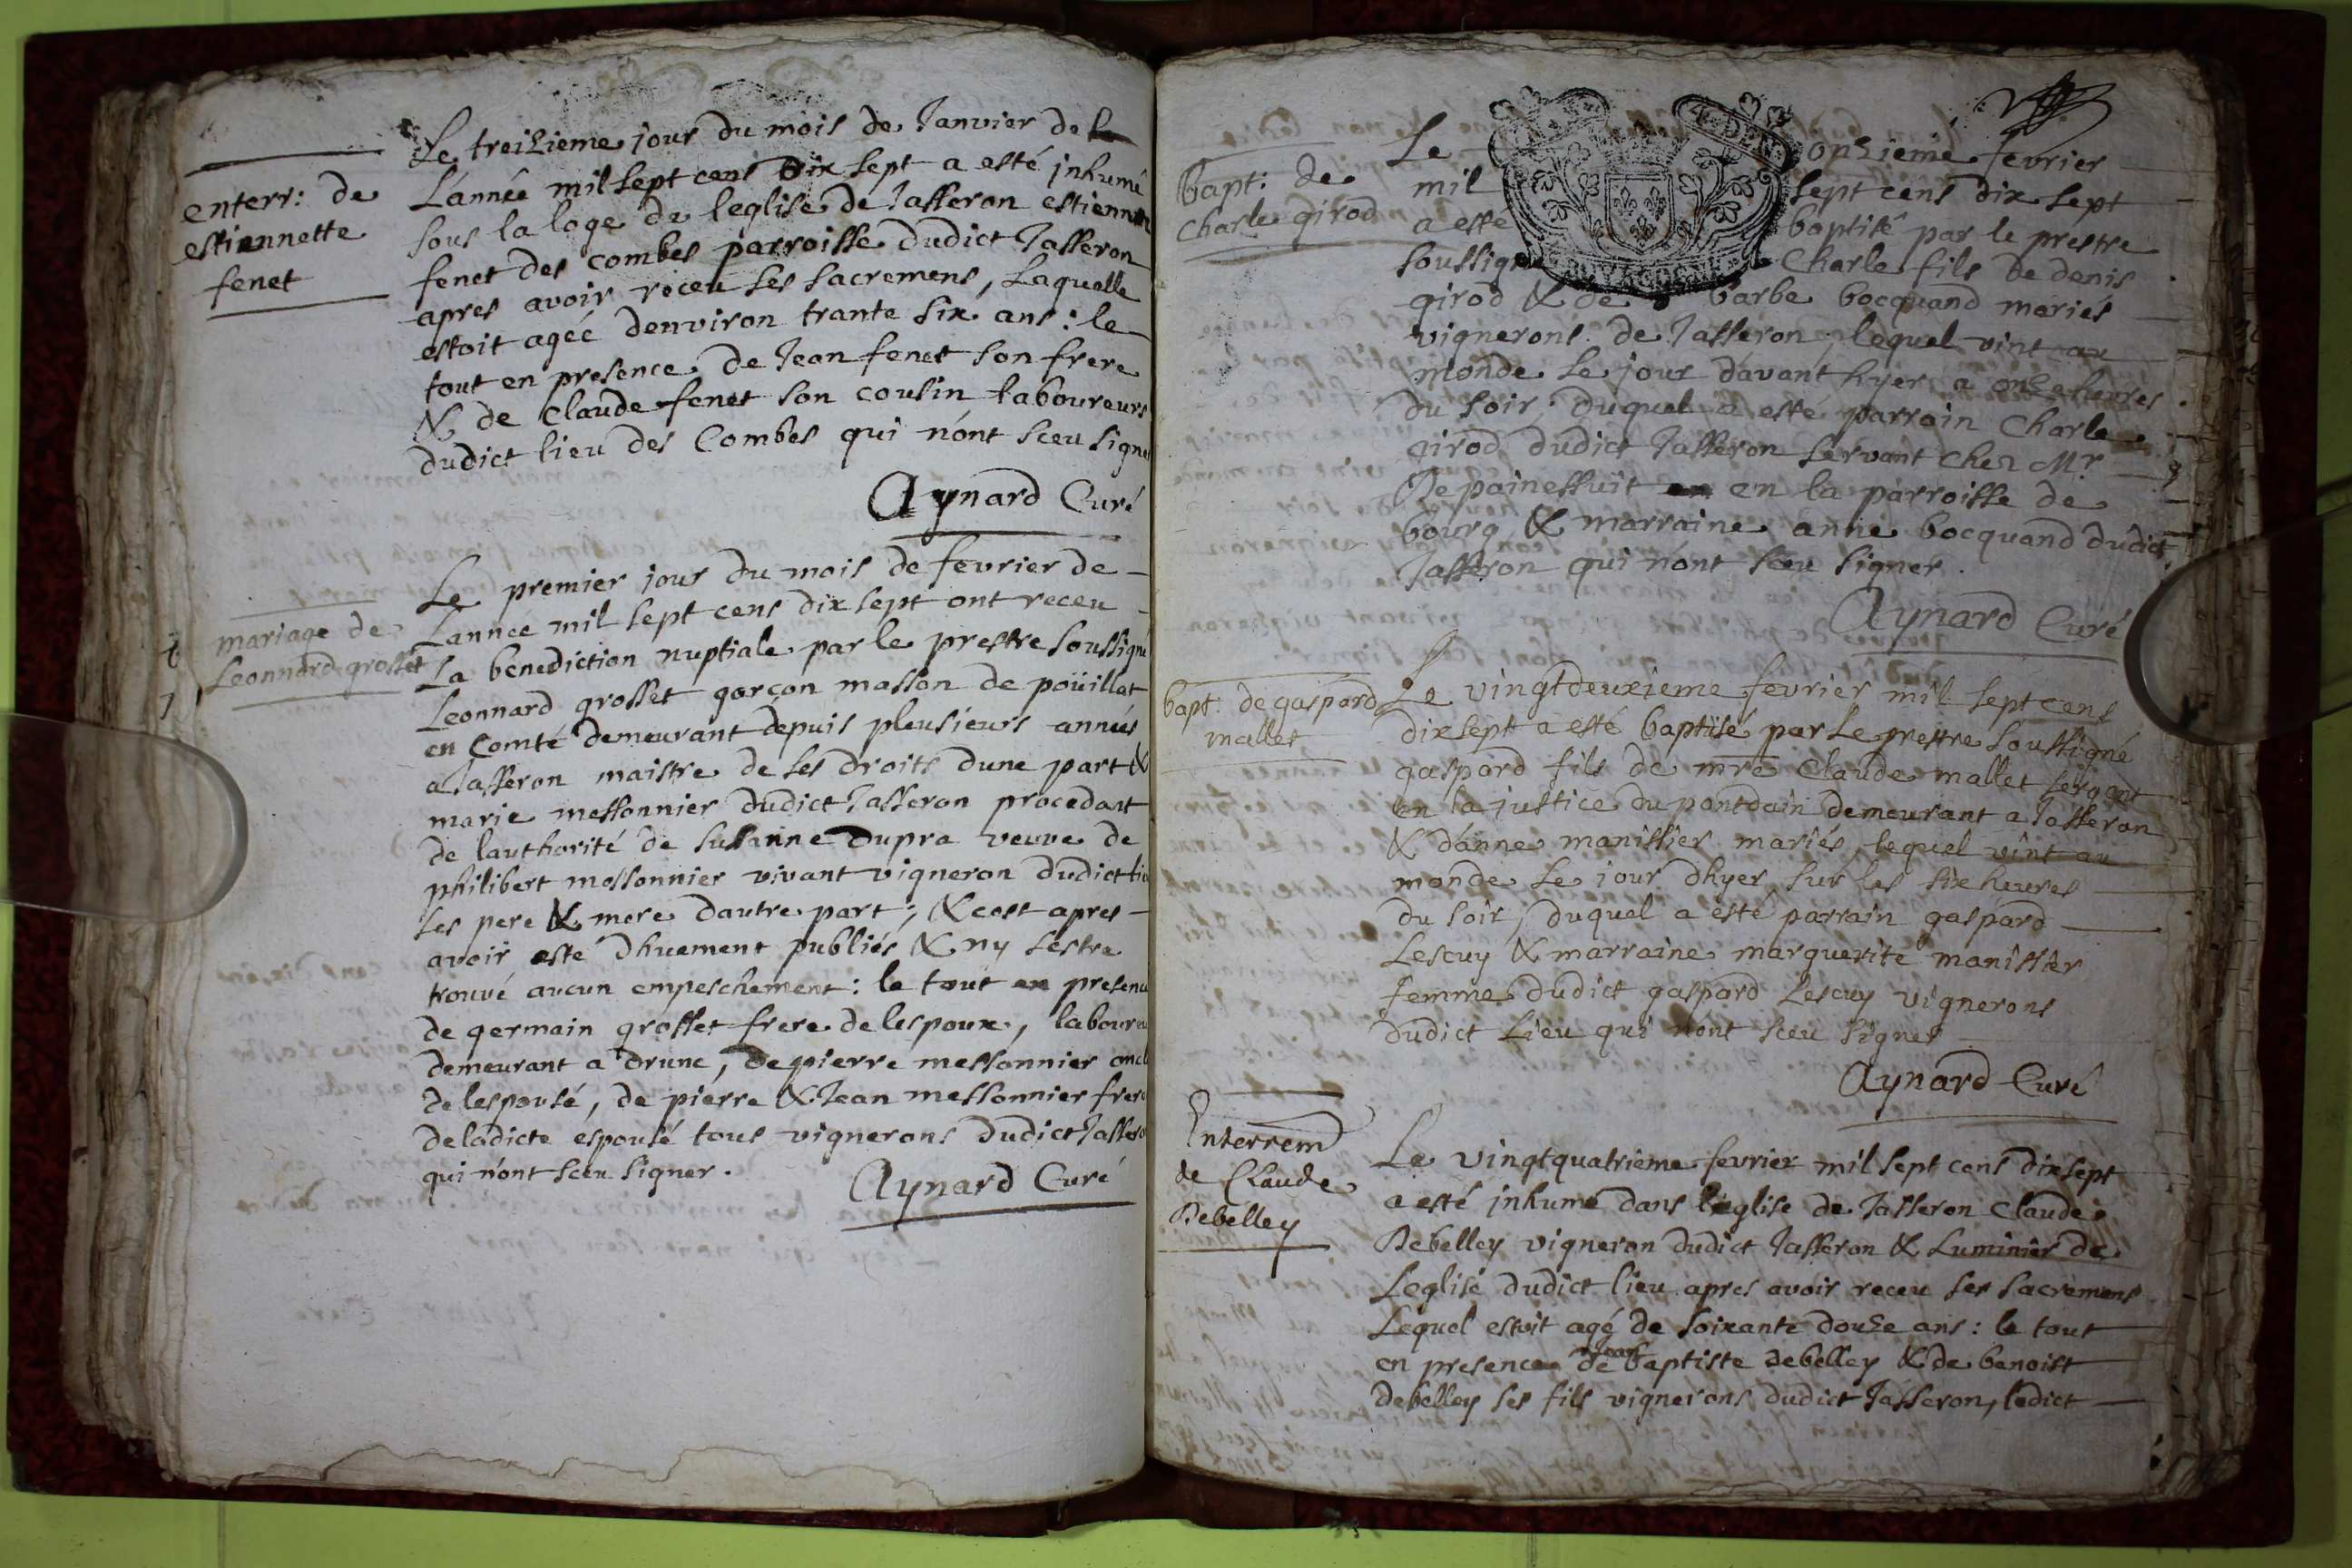 enterr: de
estiennette
fenet
Le treizieme jour du mois de Janvier de la
L'année mil sept cens dix sept a esté jnhumé
sous la loge de leglise de Jasseron estiennet
fenet des combes parroisse dudict Jasseron
apres avoir receu ses sacremens, Laquelle
estoit agée denviron trante six ans: le
tout en presence de Jean fenet son frere
& de Claude fenet son cousin laboureurs
dudict lieu des Combes qui n'ont sceu signer
Aynard Curé
mariage de
Leonnard grosset
Le premier jour du mois de fevrier de
Lannee mil sept cens dix sept ont receu
La benediction nuptiale par le prestre soussigné
Leonnard grosset garçon masson de poüillat
en Comté demeurant depuis plusieurs années
a Jasseron maistre de ses droits dune part &
marie messonnier dudict Jasseron procedant
de lauthorité de susanne Dupra veuve de
philibert messonnier vivant vigneron dudict lieu
ses pere & mere dautre part; & cest apres
avoir esté dhuement publiés & ny sestre
trouvé aucun empeschement: le tout en presence
de germain grosset frere de lespoux, laboureur
demeurant a drune, de pierre messonnier oncle
de lespousé, de pierre & Jean messonnier freres
deladicte espousé tous vignerons dudict Jasseron
qui n'ont sceu signer.
Aynard Curé
bapt: de
charle girod
Le onzieme fevrier
mil sept cens dix sept
a esté baptisé par le prestre
soussigné Charle fils de denis
girod & de barbe bocquand mariés
vignerons de Jasseron, lequel vint au
monde le jour davant hyer a onze heures
du soir; duquel a esté parrain Charle
girod dudict Jasseron servant chez Mr
Depainessuit en la parroisse de
bourg & marraine anne bocquand dudict
Jasseron qui n'ont sceu signer.
Aynard Curé
bapt: de gaspard
mallet
Le vingtdeuxieme fevrier mil sept cens
dixsept a esté baptisé par Le prestre soussigné
gaspard fils de mre Claude mallet sergent
en la justice du pontdain demeurant a Jasseron
& d'anne manissier mariés, lequel vint au
monde le jour dhyer sur les six heures
du soir; duquel a esté parrain gaspard
Lescuy & marraine marguerite manissier
femme dudict gaspard Lescuy vignerons
dudict Lieu qui n'ont sceu signer
Aynard Curé
Enterremt
de Claude
Debelley
Le vingtquatrieme fevrier mil sept cens dixsept
a esté jnhumé dans l'eglise de Jasseron Claude
Debelley vigneron dudict Jasseron & Luminier de
Leglise dudict lieu apres avoir receu ses sacremens
Lequel estoit agé de soixante douze ans: le tout
en presence de Jean baptiste debelley & de benoist
debelley ses fils vignerons dudict Jasseron, ledict